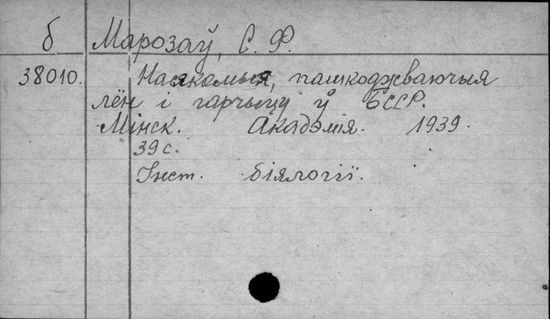 б Марозаў, С. Ф.
38010. Насякомыя, пашкоджваючыя
лён і гарчыцу ў БССР.
Мінск. Акадэмія. 1939.
39 с.
Інст. біялогіі.